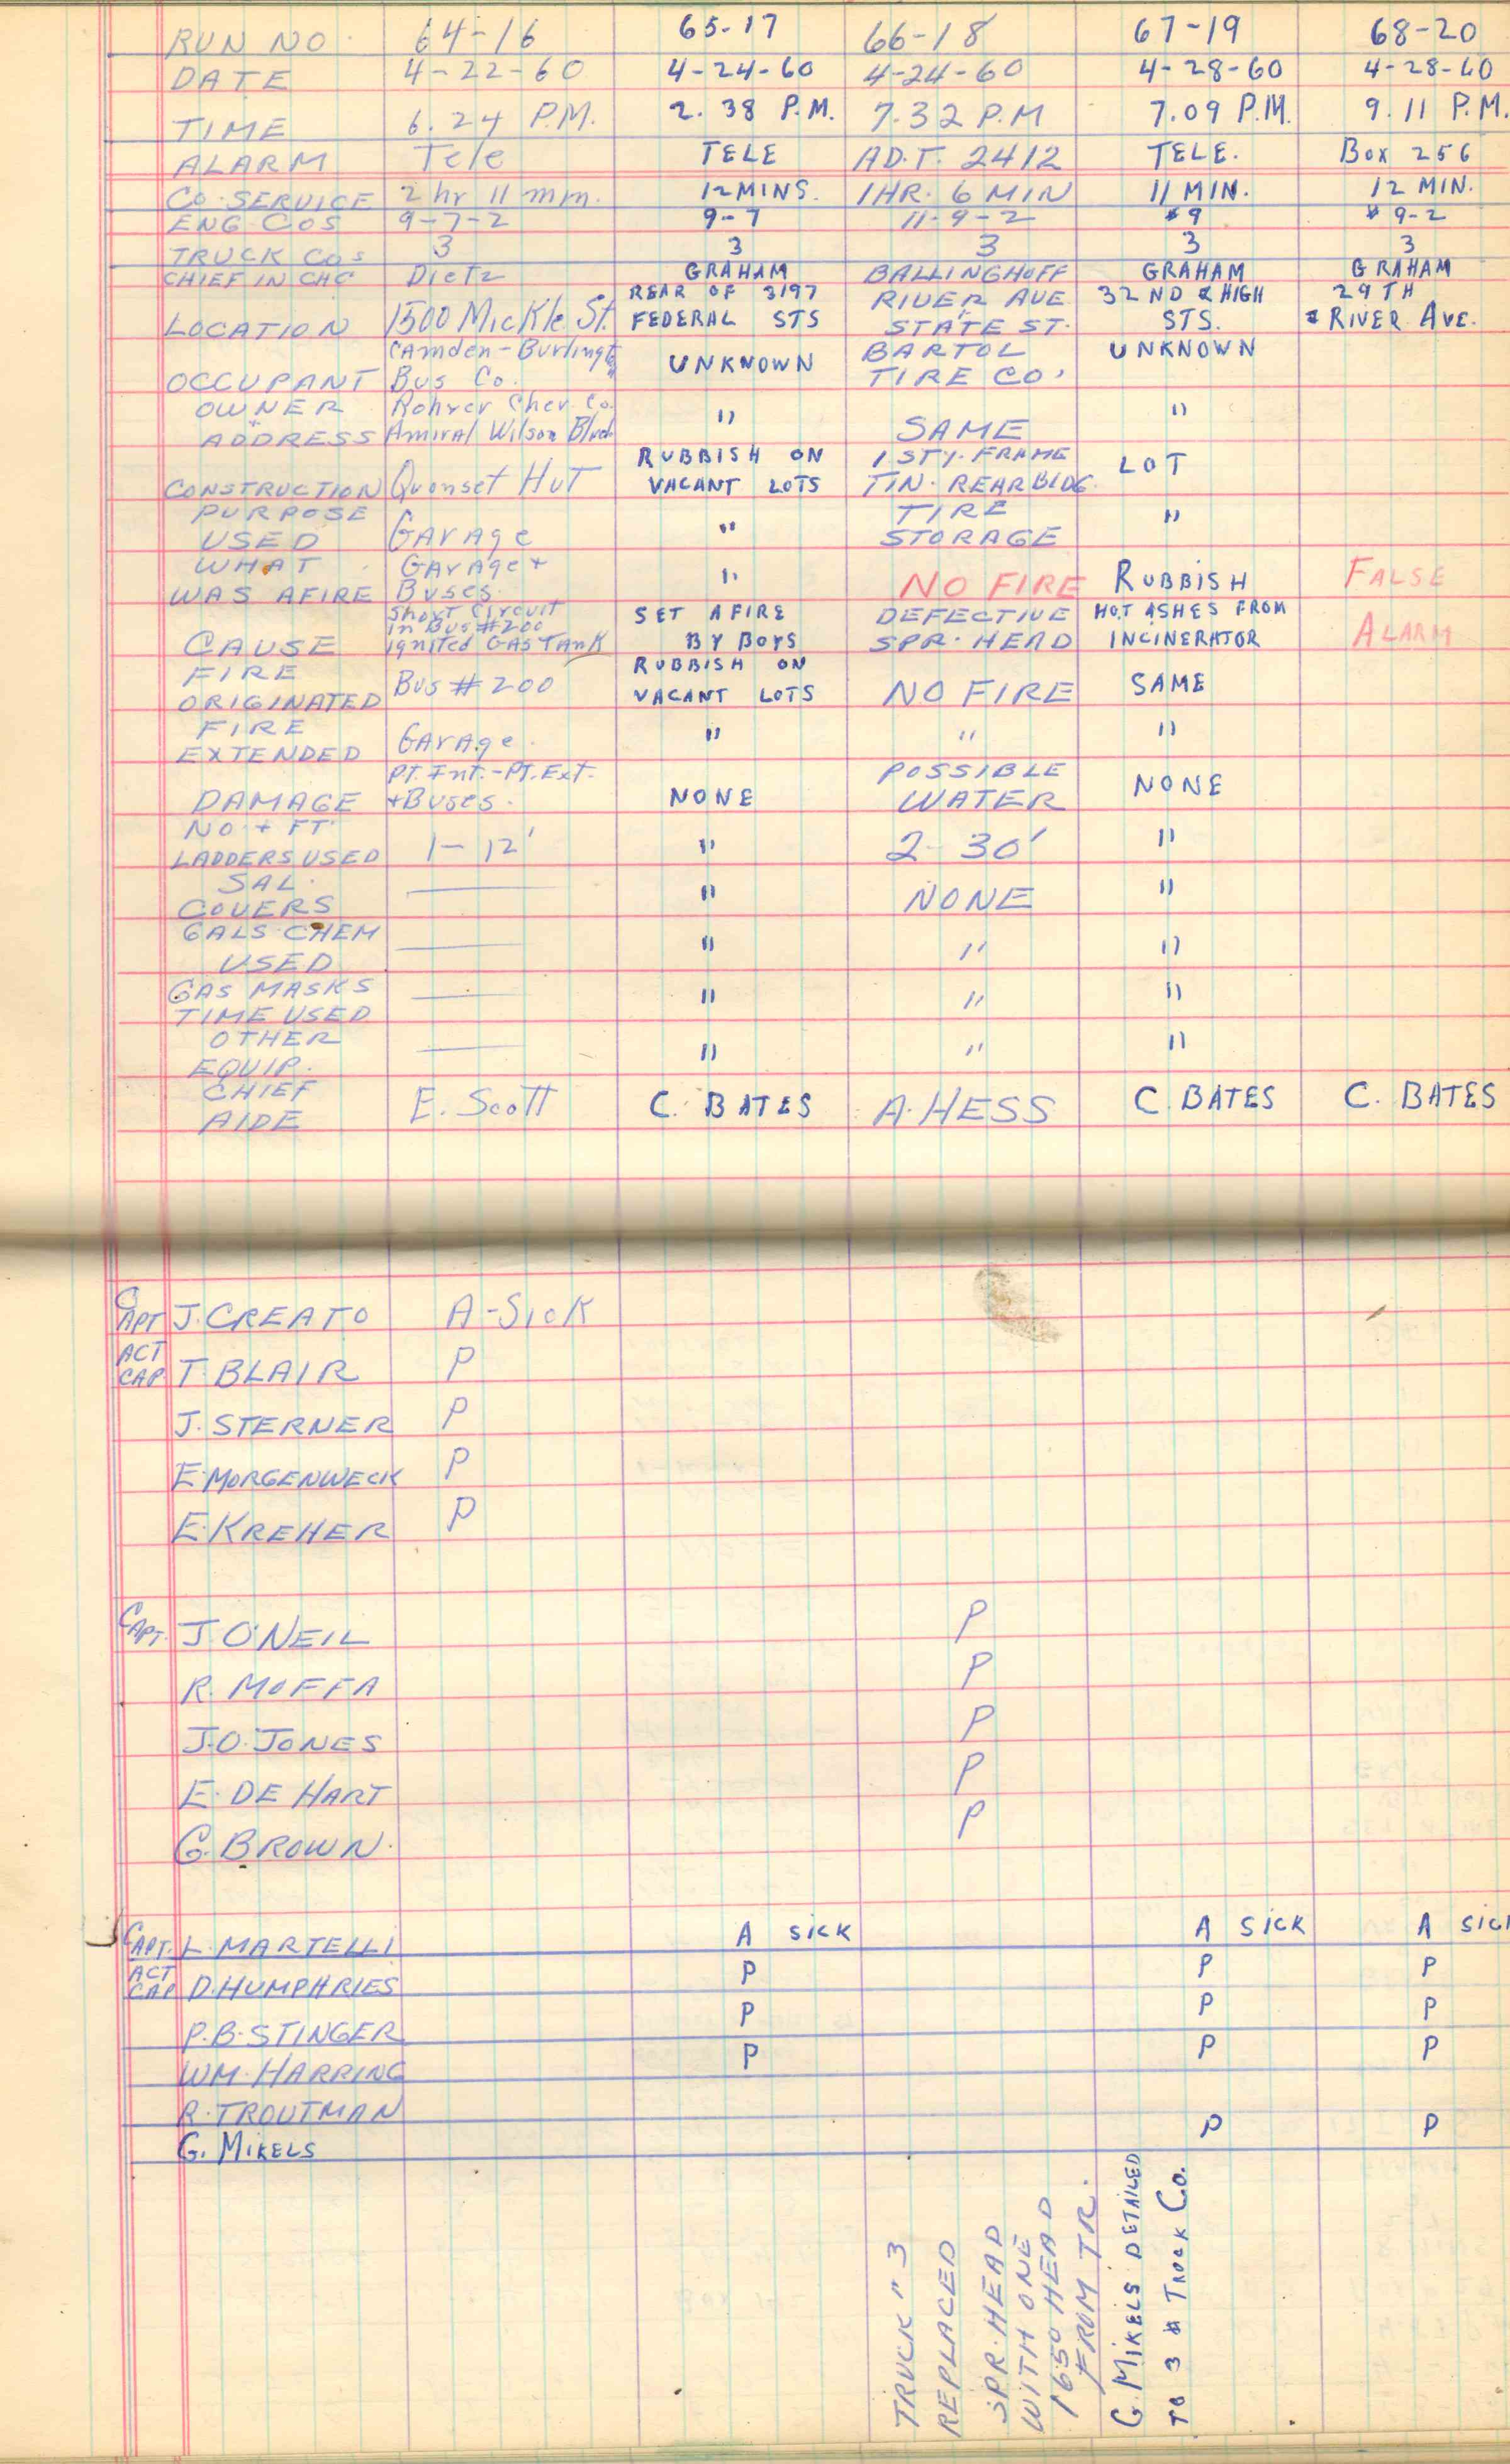 RUN NO. 64-16 65-17 66-18 67-19 68-20
DATE 4-22-60 4-24-60 4-24-60 4-28-60 4-28-60
TIME 6.24 P.M. 2.38 P.M. 7.32 P.M 7.09 P.M. 9.11 P.M.
ALARM Tele TELE A.D.T. 2412 TELE. Box 256
CO. SERVICE 2 hr 11 min. 12 MINS. 1 HR. 6 MIN 11 MIN. 12 MIN.
ENG COS 9-7-2 9-7 11-9-2 #9 # 9-2
TRUCK COS 3 3 3 3 3
CHIEF IN CHG Dietz GRAHAM BALLINGHOFF GRAHAM GRAHAM
REAR OF 3197 RIVER AVE 32 ND & HIGH 29TH
LOCATION 1500 Mickle St. FEDERAL STS STATE ST. STS. & RIVER AVE.
Camden-Burlingt BARTOL
OCCUPANT Bus Co. " UNKNOWN TIRE CO. UNKNOWN
OWNER Rohrer Chev. Co. " "
+
ADDRESS Amiral Wilson Blvd. SAME
RUBBISH ON 1 STY. FRAME
CONSTRUCTION Quonset Hut VACANT LOTS TIN. REAR BLDG. LOT
PURPOSE TIRE
USED Garage " STORAGE "
WHAT Garage +
WAS AFIRE Buses. " NO FIRE RUBBISH FALSE
Short Circuit SET AFIRE DEFECTIVE HOT ASHES FROM
in Bus #200
CAUSE ignited Gas Tank BY BOYS SPR. HEAD INCINERATOR ALARM
FIRE RUBBISH ON
ORIGINATED Bus #200 VACANT LOTS NO FIRE SAME
FIRE
EXTENDED Garage. " " "
Pt. Int.-Pt. Ext. POSSIBLE
DAMAGE +Buses. NONE WATER NONE
NO. + FT.
LADDERS USED 1-12' " 2-30' "
SAL.
COVERS " NONE "
GALS CHEM
USED " " "
GAS MASKS
TIME USED " " "
OTHER
EQUIP. " " "
CHIEF
AIDE E. Scott C. BATES A. HESS C. BATES C. BATES
CAPT J. CREATO A-Sick
ACT
CAP. T. BLAIR P
J. STERNER P
E. MORGENWECK P
E. KREHER P
CAPT. J. O'NEIL P
R. MOFFA P
J.O. JONES P
E. DE HART P
G. BROWN. P
CAPT. L. MARTELLI A SICK A SICK A SICK
ACT
CAP D. HUMPHRIES P P P
P.B. STINGER P P P
WM. HARRING P P P
R. TROUTMAN
G. MIKELS P P
TRUCK "3
REPLACED
SPR. HEAD
WITH ONE
1650 HEAD
FROM TR.
G. MIKELS DETAILED
TO 3 # TRUCK CO.